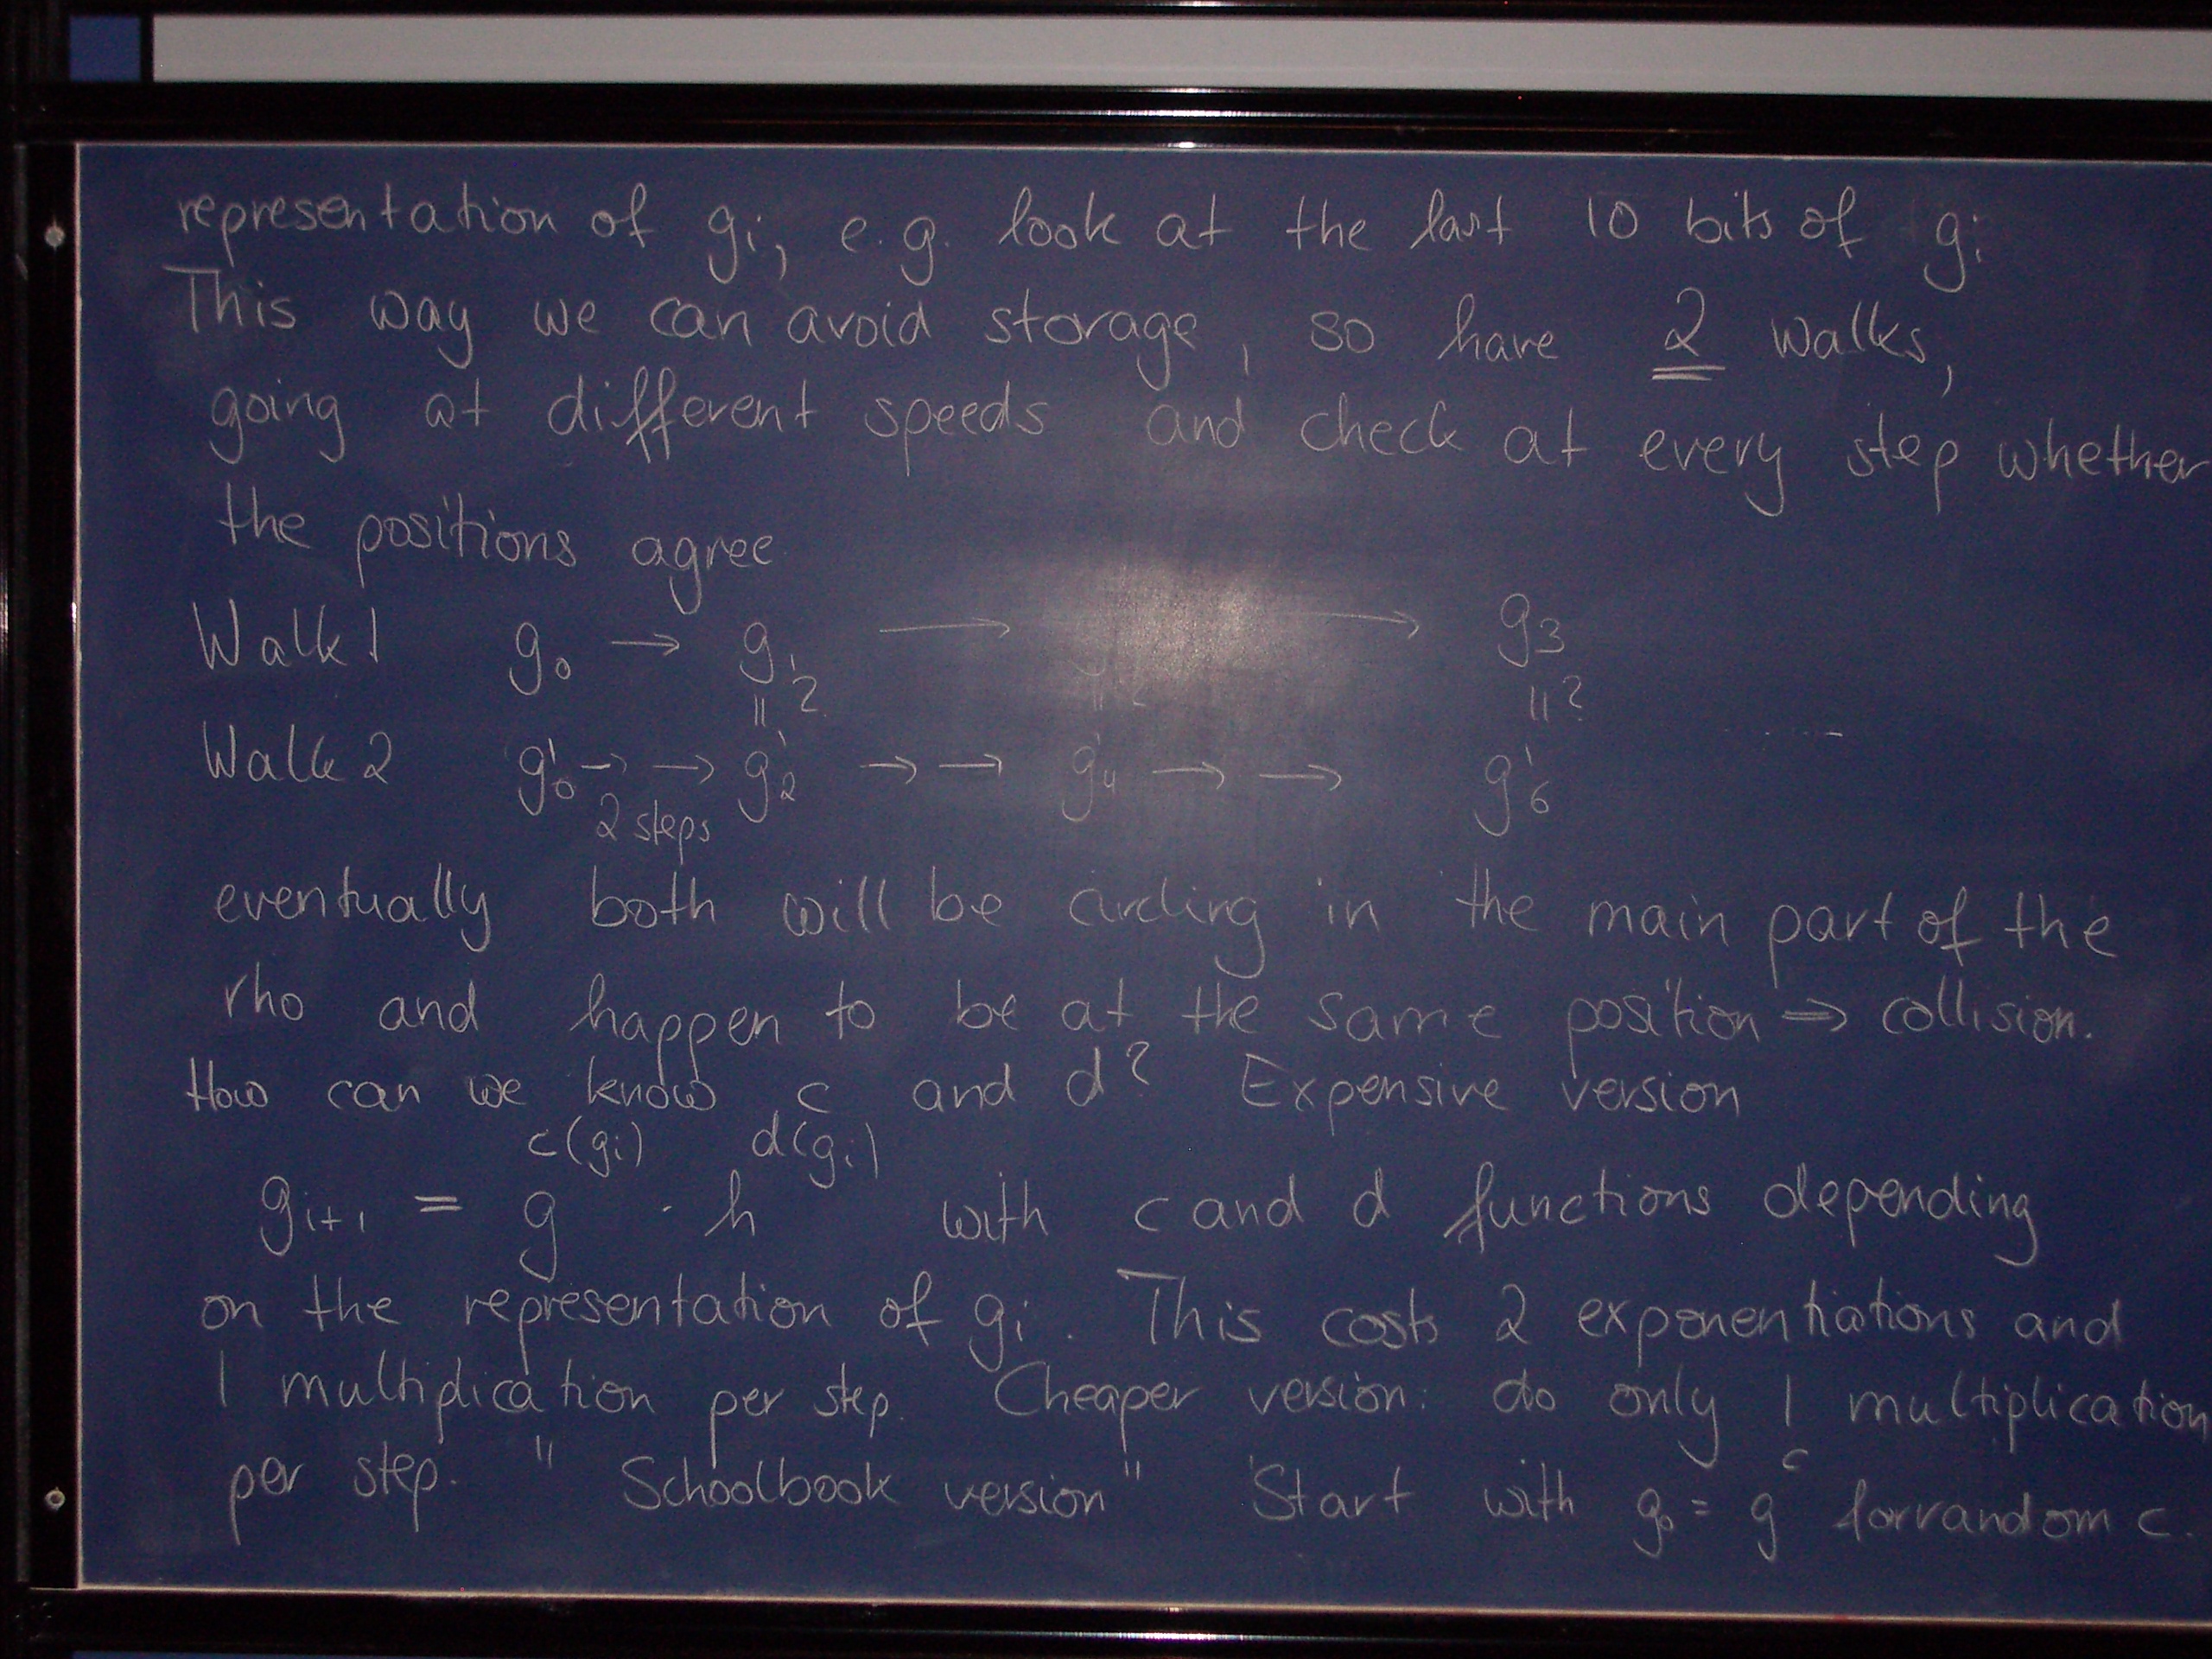 representation of gi, e.g. look at the last 10 bits of gi
This way we can avoid storage, so have 2 walks,
going at different speeds and check at every step whether
the positions agree
Walk 1 g0 → g1 → → g3
॥? ॥? ॥?
Walk 2 g'0 → → g'2 → → g'4 → → g'6 .....
2 steps
eventually both will be circling in the main part of the
rho and happen to be at the same position ⇒ collision.
How can we know c and d? Expensive version
c(gi) d(gi)
gi+1 = g · h with c and d functions depending
on the representation of gi. This costs 2 exponentiations and
1 multiplication per step. Cheaper version: do only 1 multiplication
per step. "Schoolbook version" Start with g0 = g^c for random c.